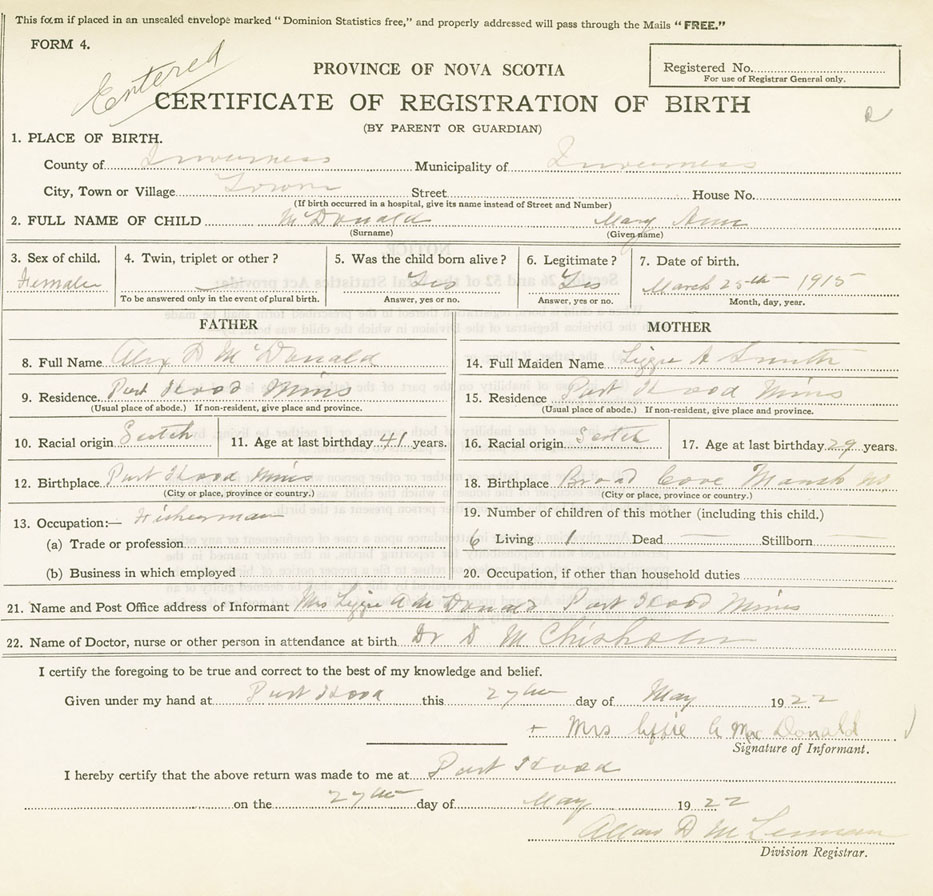 This form if placed in an unsealed envelope marked "Dominion Statistics free," and properly addressed will pass through the Mails "FREE."
FORM 4.
Entered
Registered No.
For use of Registrar General only.
PROVINCE OF NOVA SCOTIA
CERTIFICATE OF REGISTRATION OF BIRTH
(BY PARENT OR GUARDIAN)
1. PLACE OF BIRTH.
County of Inverness Municipality of Inverness
City, Town or Village Town Street House No.
(If birth occurred in a hospital, give its name instead of Street and Number)
2. FULL NAME OF CHILD McDonald Mary Ann
(Surname) (Given name)
3. Sex of child. 4. Twin, triplet or other? 5. Was the child born alive? 6. Legitimate? 7. Date of birth.
Female Yes Yes March 25th 1915
To be answered only in the event of plural birth. Answer, yes or no. Answer, yes or no. Month, day, year.
FATHER MOTHER
8. Full Name Alex D McDonald 14. Full Maiden Name Lizzie A Smith
9. Residence. Port Hood Mines 15. Residence Port Hood Mines
(Usual place of abode.) If non-resident, give place and province. (Usual place of abode.) If non-resident, give place and province.
10. Racial origin Scotch 11. Age at last birthday 41 years. 16. Racial origin Scotch 17. Age at last birthday 29 years.
12. Birthplace Port Hood Mines 18. Birthplace Broad Cove Marsh NS
(City or place, province or country.) (City or place, province or country.)
13. Occupation:— Fisherman 19. Number of children of this mother (including this child.)
(a) Trade or profession 6 Living 1 Dead — Stillborn —
(b) Business in which employed 20. Occupation, if other than household duties
21. Name and Post Office address of Informant Mrs Lizzie A McDonald Port Hood Mines
22. Name of Doctor, nurse or other person in attendance at birth Dr D M Chisholm
I certify the foregoing to be true and correct to the best of my knowledge and belief.
Given under my hand at Port Hood this 27th day of May 1922
+ Mrs A Mc Donald
Signature of Informant.
I hereby certify that the above return was made to me at Port Hood
on the 27th day of May 1922
Allan D McLennan
Division Registrar.